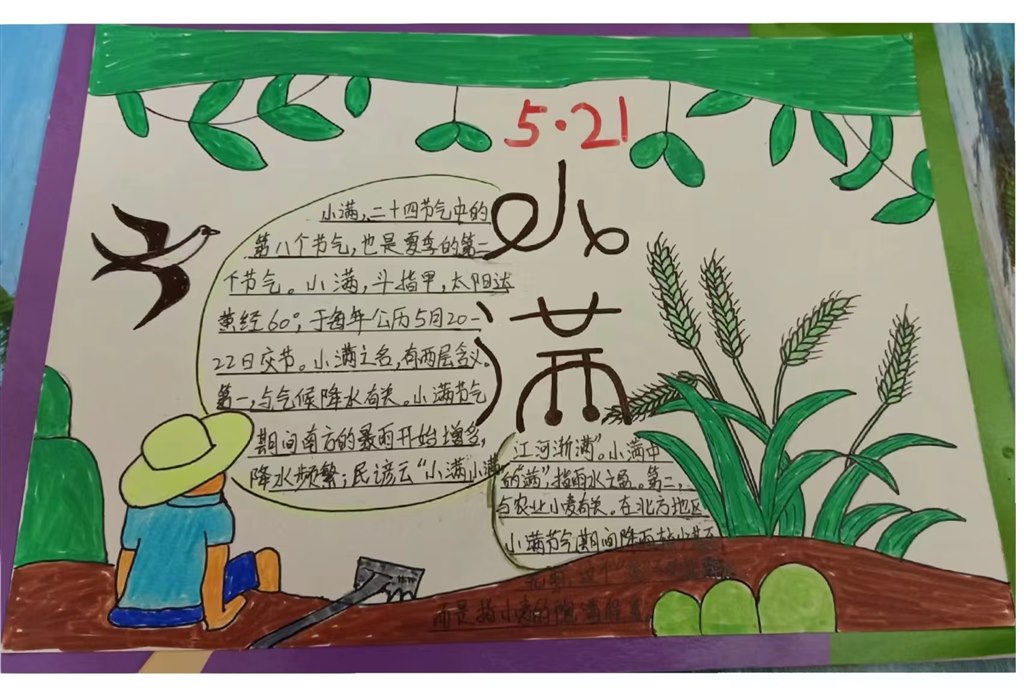 5.21
小满
小满,二十四节气中的
第八个节气,也是夏季的第二
个节气。小满,斗指甲,太阳达
黄经60°,于每年公历5月20-
22日交节。小满之名,有两层含义。
第一,与气候降水有关。小满节气
期间南方的暴雨开始增多,
降水频繁;民谚云“小满小满
江河渐满”。小满中
的“满”,指雨水之盈。第二,
与农业小麦有关。在北方地区
小满节气期间降雨
而是指小麦的